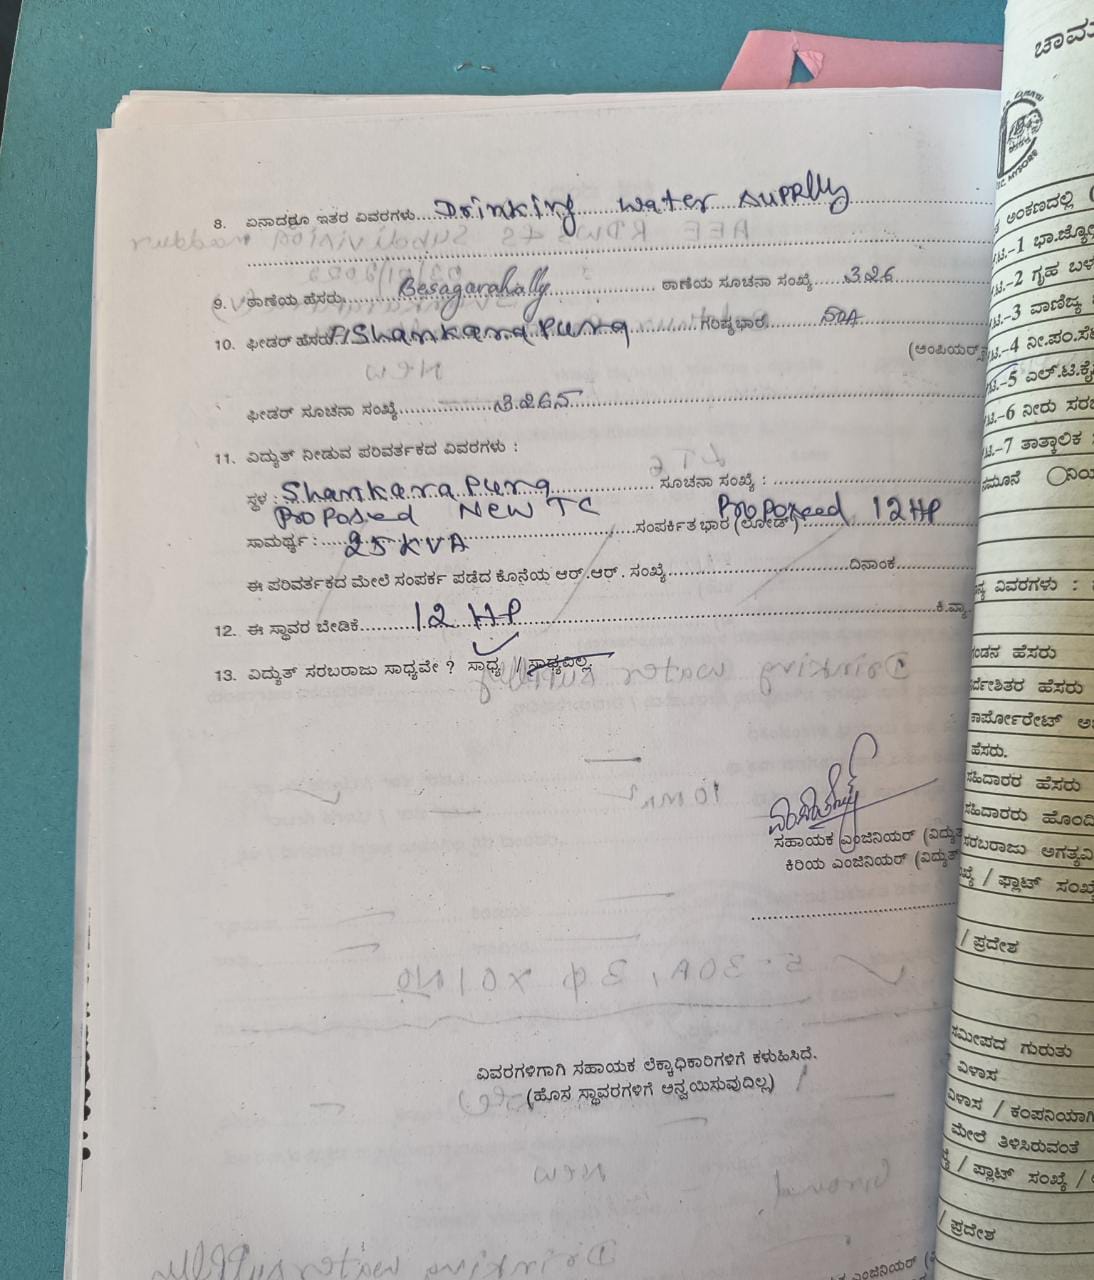 8. ಏನಾದರೂ ಇತರ ವಿವರಗಳು Drinking water supply
9. ಠಾಣೆಯ ಹೆಸರು Besagarahally ಠಾಣೆಯ ಸೂಚನಾ ಸಂಖ್ಯೆ
10. ಫೀಡರ್ ಹೆಸರು Shankarapura ಗರಿಷ್ಠಭಾರ
(ಆಂಪಿಯರ್
ಫೀಡರ್ ಸೂಚನಾ ಸಂಖ್ಯೆ
11. ವಿದ್ಯುತ್ ನೀಡುವ ಪರಿವರ್ತಕದ ವಿವರಗಳು :
ಸ್ಥಳ : Shankarapura ಸೂಚನಾ ಸಂಖ್ಯೆ :
Proposed New TC Proposed 12 HP
ಸಾಮರ್ಥ್ಯ : 25 KVA ಸಂಪರ್ಕಿತ ಭಾರ (ಲೋಡ್)
ಈ ಪರಿವರ್ತಕದ ಮೇಲೆ ಸಂಪರ್ಕ ಪಡೆದ ಕೊನೆಯ ಆರ್.ಆರ್. ಸಂಖ್ಯೆ ದಿನಾಂಕ
12. ಈ ಸ್ಥಾವರ ಬೇಡಿಕೆ 12 HP ಕಿ.ವ್ಯಾ.
13. ವಿದ್ಯುತ್ ಸರಬರಾಜು ಸಾಧ್ಯವೇ ? ಸಾಧ್ಯ / ಸಾಧ್ಯವಿಲ್ಲ
ಸಹಾಯಕ ಎಂಜಿನಿಯರ್ (ವಿದ್ಯುತ್
ಕಿರಿಯ ಎಂಜಿನಿಯರ್ (ವಿದ್ಯುತ್
ವಿವರಗಳಿಗಾಗಿ ಸಹಾಯಕ ಲೆಕ್ಕಾಧಿಕಾರಿಗಳಿಗೆ ಕಳುಹಿಸಿದೆ.
(ಹೊಸ ಸ್ಥಾವರಗಳಿಗೆ ಅನ್ವಯಿಸುವುದಿಲ್ಲ)
ಅಂಕಣದಲ್ಲಿ
-2 ಗೃಹ ಬಳ
-3 ವಾಣಿಜ್ಯ
-4 ನೀ.ಪಂ.ಸೆ
-5 ಎಲ್.ಟಿ.ಕೈ
-6 ನೀರು ಸರಬ
-7 ತಾತ್ಕಾಲಿಕ
ವಿವರಗಳು :
ಹೆಸರು
ಹೆಸರು
ಕಾರ್ಪೋರೇಟ್
ಹೆಸರು.
ಹೆಸರು
ಸರಬರಾಜು
/ ಫ್ಲಾಟ್ ಸಂಖ್ಯೆ
/ ಪ್ರದೇಶ
ಸಮೀಪದ ಗುರುತು
ವಿಳಾಸ
ವಿಳಾಸ / ಕಂಪನಿಯಾಗಿ
ಮೇಲೆ ತಿಳಿಸಿರುವಂತೆ
/ ಫ್ಲಾಟ್ ಸಂಖ್ಯೆ /
/ ಪ್ರದೇಶ